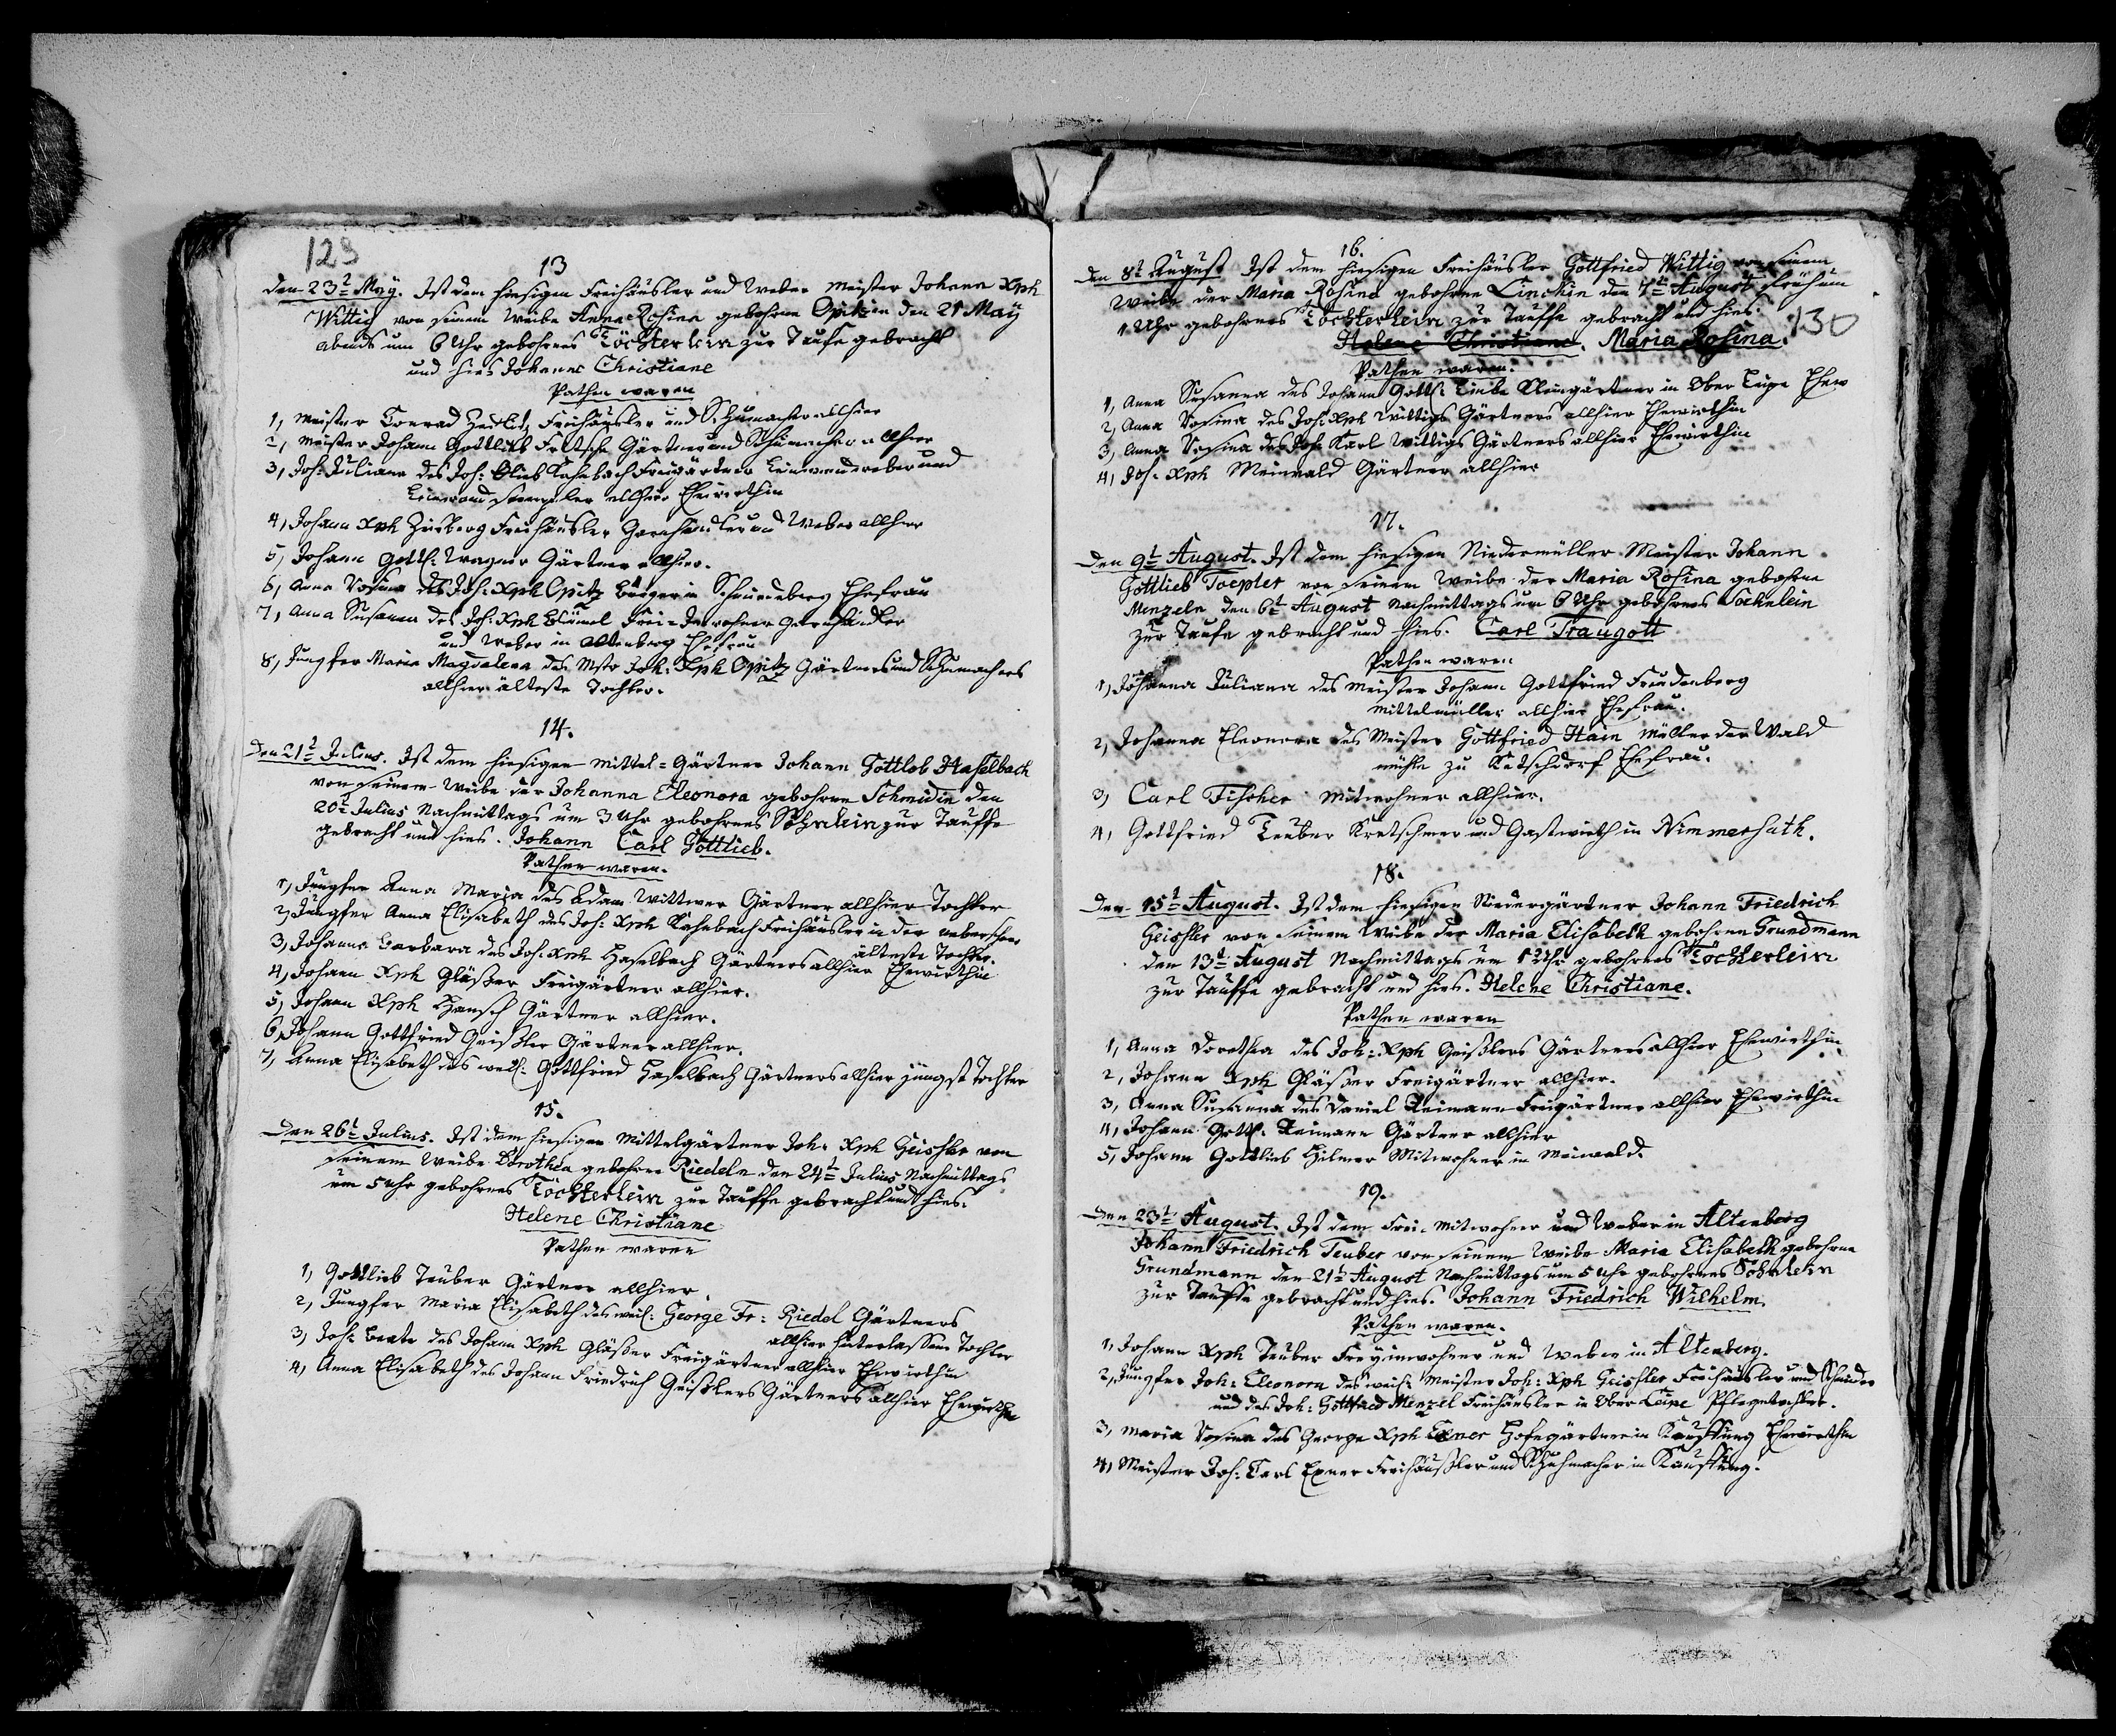 129
13
den 23t May. Ist dem hiesigen Freihäusler und Weber Meister Johann Xph
Wittig von seinem Weibe Anna Rosina gebohrne Opitzin den 21 May
abends um 6 Uhr gebohrnes Töchterlein zur Taufe gebracht
und hies Johanne Christiane
Pathen waren
1, Meister Conrad Zedlitz Freihäusler und Schumacher allhier
2, Meister Johann Gottlieb Fritsche Gärtner und Schumacher allhier
3, Joh: Juliane des Joh: Glieb Kahlbach Freigärtner Leinwandweber und
Leinwand allhier Ehewirthin
4, Johann Xph Freihäusler Garnhändler und Weber allhier
5, Johann Gottl: Wagner Gärtner allhier.
6, Anna Rosina des Joh: Xph Opitz Bürger in Schmiedeberg Ehefrau
7, Anna Susanna des Joh: Xph Blümel Frei-Inwohner Garnhändler
und Weber in Altenberg Ehefrau
8, Jungfer Maria Magdalena des Mstr Joh: Xph Opitz Gärtners und Schumachers
allhier älteste Tochter.
14.
Den 21t Julius. Ist dem hiesigen Mittel-Gärtner Johann Gottlob Haselbach
von seinem Weibe der Johanna Eleonora gebohrne Schmidin den
20t Julius Nachmittags um 3 Uhr gebohrnes Söhnlein zur Tauffe
gebracht und hies. Johann Carl Gottlieb.
Pathen waren.
1, Jungfer Anna Maria des Adam Wittwer Gärtner allhier Tochter
2, Jungfer Anna Elisabeth des Joh: Xph Kahlbach Freihäusler in der
älteste Tochter.
3, Johanne Barbara des Joh. Xph Haselbach Gärtners allhier Ehewirthin
4, Johann Xph Gläßer Freigärtner allhier.
5, Johann Xph Hansch Gärtner allhier.
6, Johann Gottfried Geißler Gärtner allhier.
7, Anna Elisabeth des weil: Gottfried Haselbach Gärtners allhier jüngste Tochter
15.
Den 26t Julius. Ist dem hiesigen Mittelgärtner Joh: Xph Geishler von
seinem Weibe Dorothea gebohrne Riedeln den 24t Julius Nachmittags
um 5 Uhr gebohrnes Töchterlein zur Tauffe gebracht und hies.
Helene Christiane
Pathen waren
1, Gottlieb Teuber Gärtner allhier.
2, Jungfer Maria Elisabeth des weil: George Fr: Riedel Gärtners
allhier hinterlassene Tochter
3, Joh: Beate des Johann Xph Gläßer Freigärtner allhier Ehewirthin
4, Anna Elisabeth des Johann Friedrich Geißlers Gärtners allhier Ehewirthin
16.
den 8t August Ist dem hiesigen Freihäusler Gottfried Wittig von seinem
Weibe der Maria Rosina gebohrne Linckin den 7t August früh um
1 Uhr gebohrnes Töchterlein zur Tauffe gebracht und hies.
130
Helene Christiane. Maria Rosina.
Pathen waren.
1, Anna Susanna des Johann Gottl: Linke Kleingärtner in Ober Leipe Ehew
2, Anna Rosina des Joh: Xph Wittigs Gärtners allhier Ehewirthin
3, Anna Rosina des Joh: Karl Wittigs Gärtners allhier Ehewirthin
4, Joh. Xph Meinwald Gärtner allhier
17.
Den 9t August. Ist dem hiesigen Niedermüller Meister Johann
Gottlieb Toepler von seinem Weibe der Maria Rosina gebohrne
Menzeln den 6t August Nachmittags um 6 Uhr gebohrnes Söehnlein
zur Taufe gebracht und hies. Carl Traugott
Pathen waren
1, Johanna Juliana des Meister Johann Gottfried Freudenberg
Mittelmüller allhier Ehefrau.
2, Johanna Eleonora des Meister Gottfried Hain Müller der Wald
mühle zu Ketschdorf Ehefrau.
3, Carl Fischer Mitwohner allhier.
4, Gottfried Teuber Kretschmer und Gastwirth in Nimmersath.
18.
Den 15t August. Ist dem hiesigen Niedergärtner Johann Friedrich
Geishler von seinem Weibe der Maria Elisabeth gebohrne Grundmann
den 13t August Nachmittags um 1 Uhr gebohrnes Töchterlein
zur Tauffe gebracht und hies. Helene Christiane.
Pathen waren
1, Anna Dorothea des Joh: Xph Geißlers Gärtners allhier Ehewirthin
2, Johann Xph Gläßer Freigärtner allhier.
3, Anna Susanna des Daniel Reimann Freigärtner allhier Ehewirthin
4, Johann Gottl. Reimann Gärtner allhier
5, Johann Gottlieb Hilmer Mitwohner in Meiwald.
19.
Den 23t August. Ist dem Frei-Mitwohner und Weber in Altenberg
Johann Friedrich Teuber von seinem Weibe Maria Elisabeth gebohrne
Grundmann den 21t August Nachmittags um 5 Uhr gebohrnes Söhnlein
zur Tauffe gebracht und hies. Johann Friedrich Wilhelm.
Pathen waren.
1, Johann Xph Teuber Freyinwohner und Weber in Altenberg.
2, Jungfer Joh: Eleonora des weil: Meister Joh: Xph Geishler Freihäusler und Schneider
und des Joh: Gottfried Menzel Freihäusler in Ober Leipe Pflegetochter.
3, Maria Rosina des George Xph Exner Hofegärtner in Kauffung Ehewirthin
4, Meister Joh: Carl Exner Freihäußler und Schuhmacher in Kauffung.